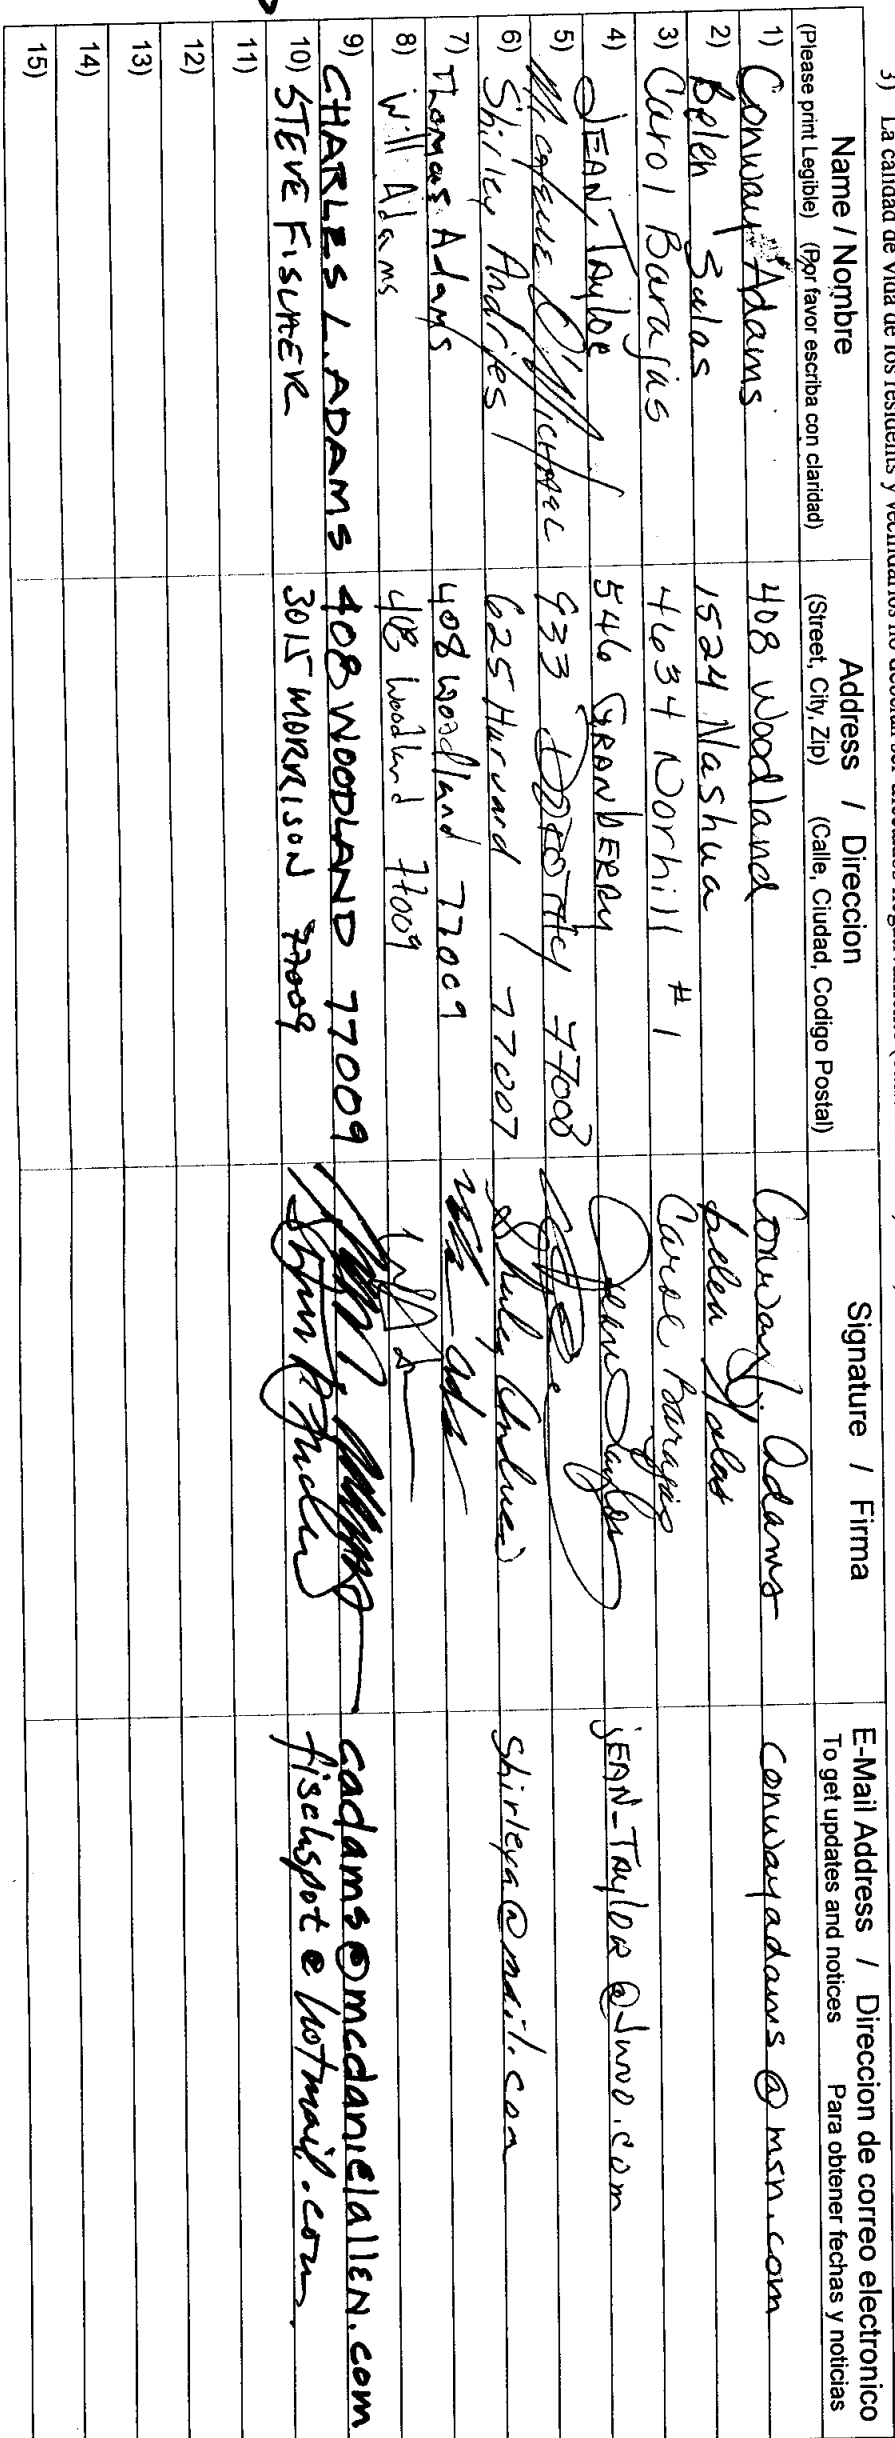 3) La calidad de vida de los residents y vecindarios no
Name / Nombre
(Please print Legible) (Por favor escriba con claridad)
Address / Direccion
(Street, City, Zip) (Calle, Ciudad, Codigo Postal)
Signature / Firma
E-Mail Address / Direccion de correo electronico
To get updates and notices Para obtener fechas y noticias
1) Conway Adams 408 Woodland Conway J. Adams conwayadams@msn.com
2) Belen Salas 1524 Nashua Belen Salas
3) Carol Barajas 4634 Norhill #1 Carol Barajas
4) JEAN TAYLOR 546 GRANBERRY Jean Taylor JEAN_TAYLOR@JUNO.COM
5) O'MICHAEL 933 DOROTHY 77008
6) Shirley Andries 625 Harvard 77007 Shirley Andries shirleya@mail.com
7) Thomas Adams 408 Woodland 77009
8) Will Adams 408 Woodland 77009
9) CHARLES L. ADAMS 408 WOODLAND 77009 cadams@mcdanielallen.com
10) STEVE FISCHER 3015 MORRISON 77009 fischspot@hotmail.com
11)
12)
13)
14)
15)